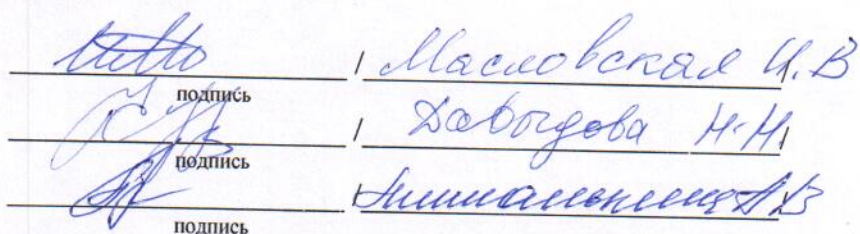 / Масловская И.В
подпись
/ Давыдова Н.Н/
подпись
/
подпись